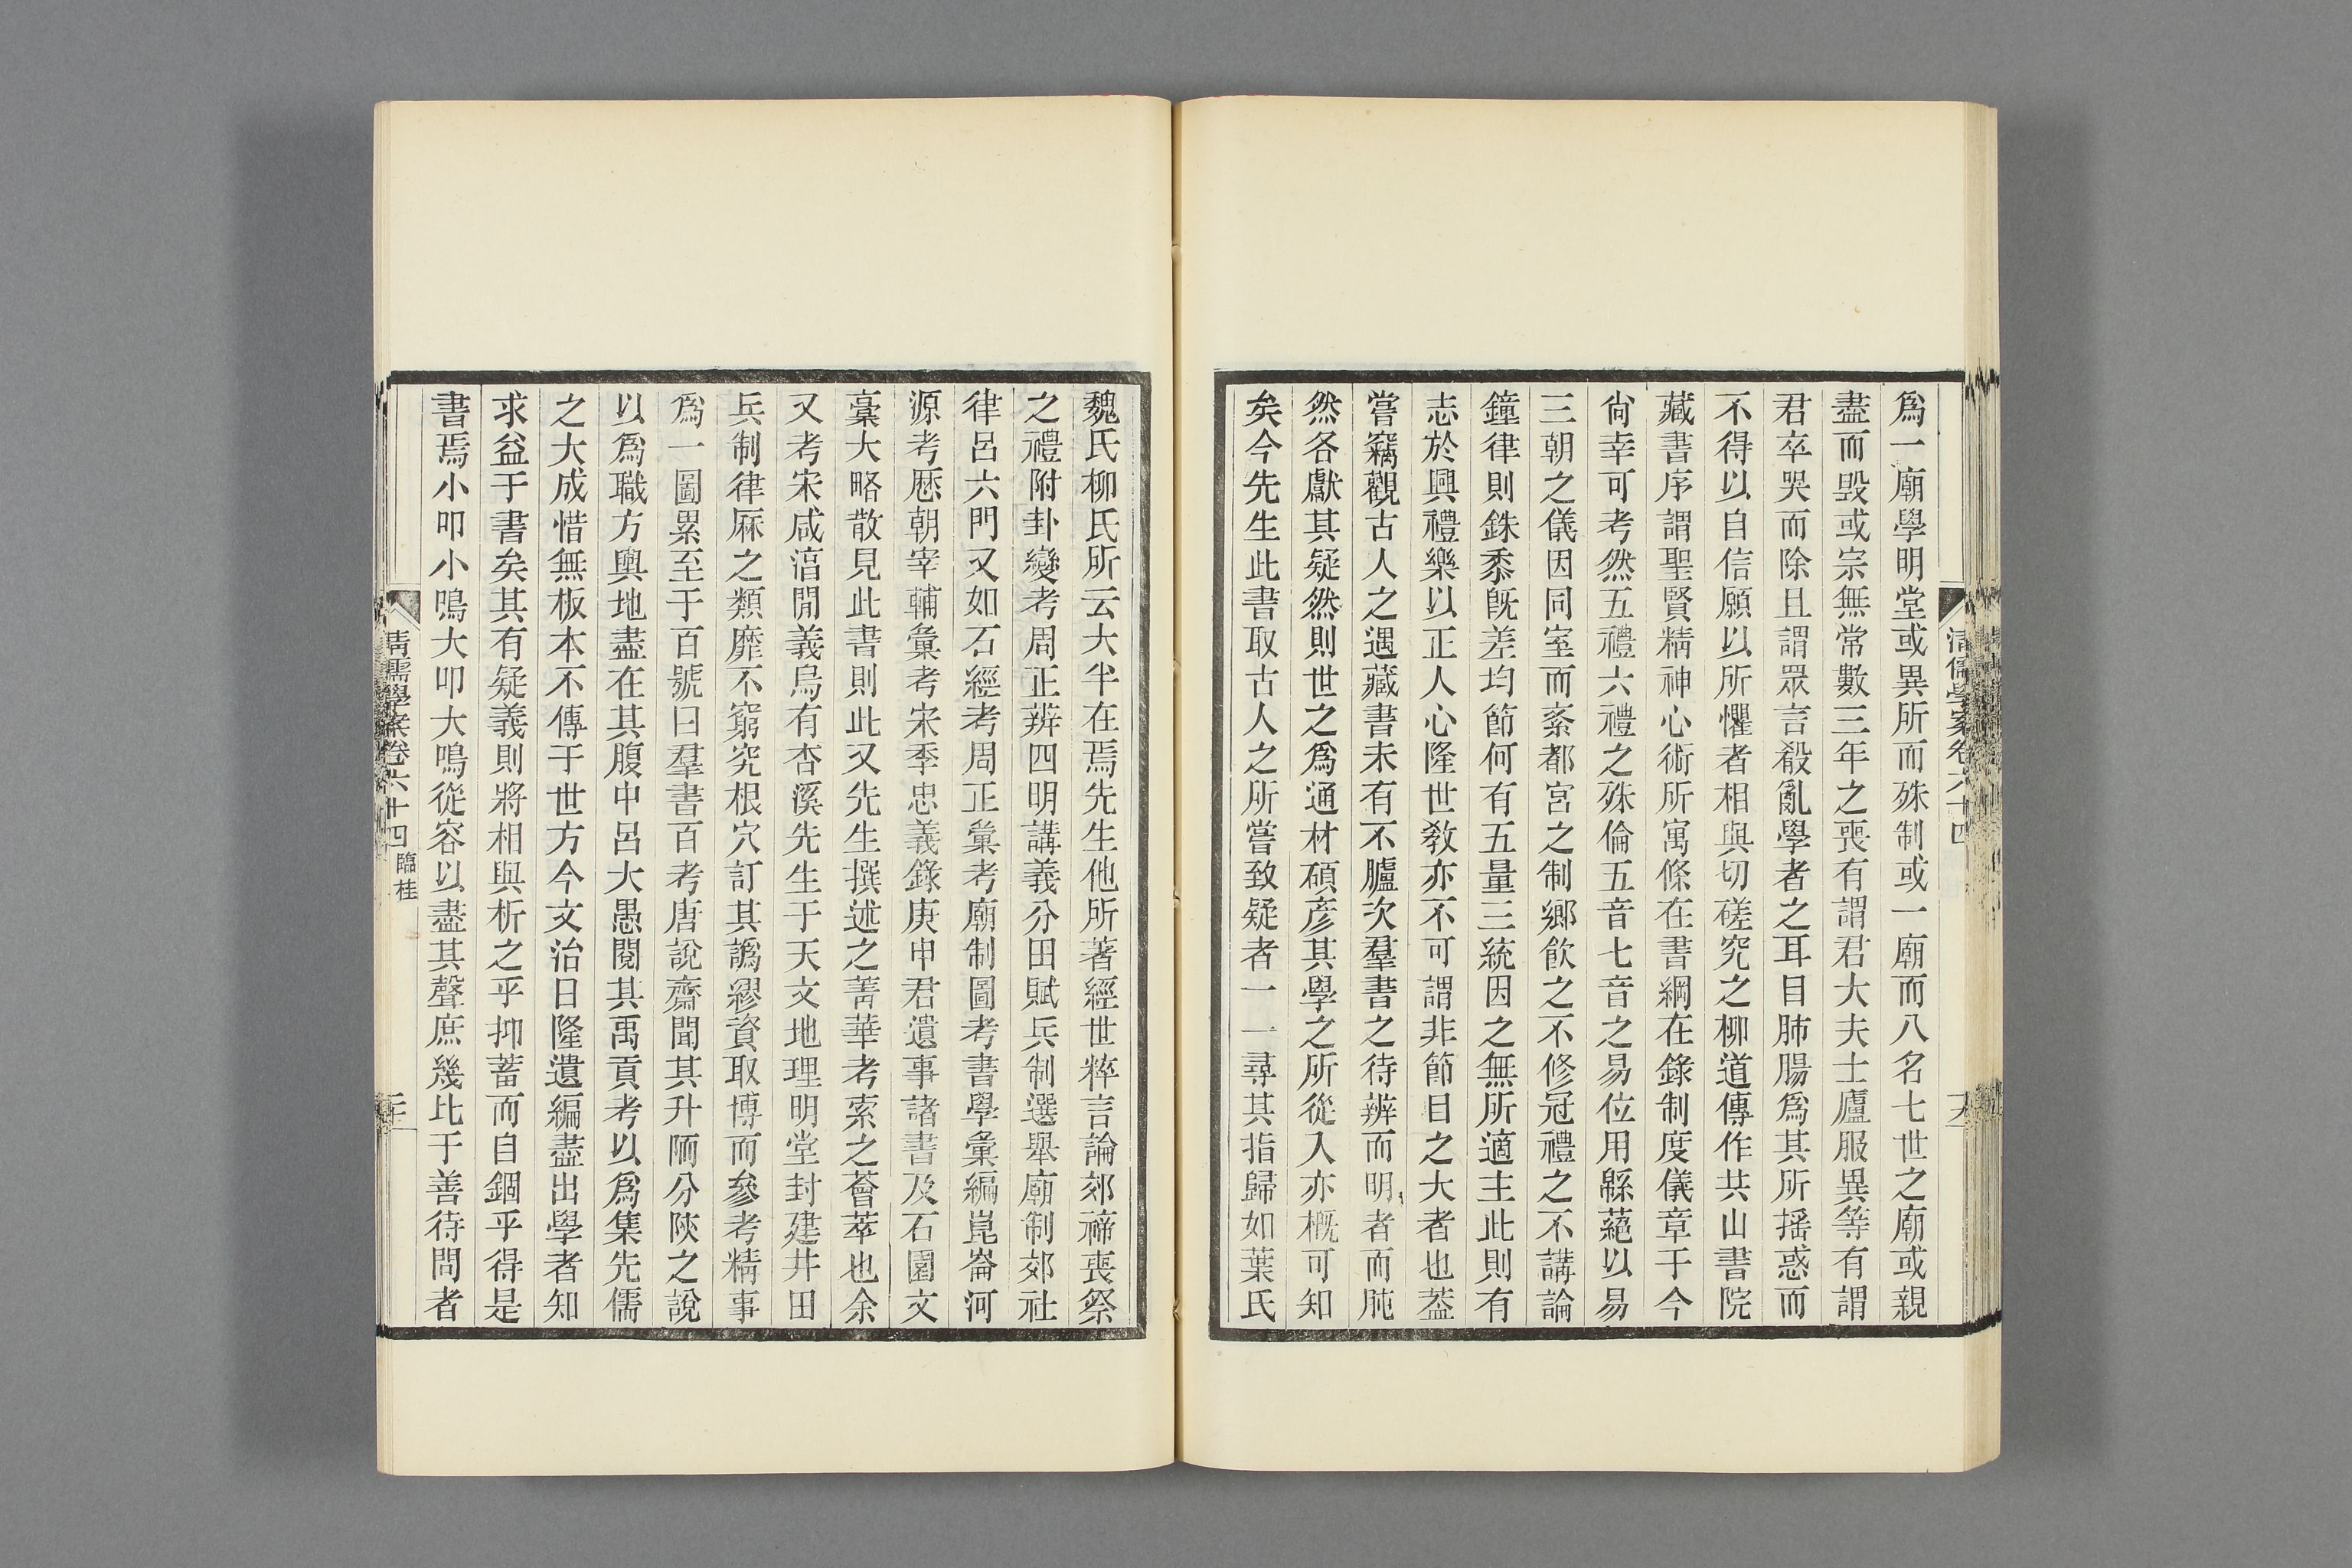 清儒學案卷六十四
爲一廟學明堂或異所而殊制或一廟而八名七世之廟或親
盡而毀或宗無常數三年之喪有謂君大夫士廬服異等有謂
君卒哭而除且謂眾言殽亂學者之耳目肺腸爲其所搖惑而
不得以自信願以所懼者相與切磋究之柳道傳作共山書院
藏書序謂聖賢精神心術所寓條在書綱在錄制度儀章于今
尙幸可考然五禮六禮之殊倫五音七音之易位用緜蕝以易
三朝之儀因同室而紊都宮之制鄉飮之不修冠禮之不講論
鐘律則銖黍旣差均節何有五量三統因之無所適主此則有
志於興禮樂以正人心隆世敎亦不可謂非節目之大者也蓋
嘗竊觀古人之遇藏書未有不臚次羣書之待辨而明者而肫
然各獻其疑然則世之爲通材碩彥其學之所從入亦概可知
矣今先生此書取古人之所嘗致疑者一一尋其指歸如葉氏
魏氏柳氏所云大半在焉先生他所著經世粹言論郊禘喪祭
之禮附卦變考周正辨四明講義分田賦兵制選舉廟制郊社
律呂六門又如石經考周正彙考廟制圖考書學彙編崑崙河
源考歷朝宰輔彙考宋季忠義錄庚申君遺事諸書及石園文
稾大略散見此書則此又先生撰述之菁華考索之薈萃也余
又考宋咸湻閒義烏有杏溪先生于天文地理明堂封建井田
兵制律厤之類靡不窮究根穴訂其譌繆資取博而參考精事
爲一圖累至于百號曰羣書百考唐說齋聞其升陑分陝之說
以爲職方輿地盡在其腹中呂大愚閱其禹貢考以爲集先儒
之大成惜無板本不傳于世方今文治日隆遺編盡出學者知
求益于書矣其有疑義則將相與析之乎抑蓄而自錮乎得是
書焉小叩小鳴大叩大鳴從容以盡其聲庶幾比于善待問者
清儒學案卷六十四 臨桂